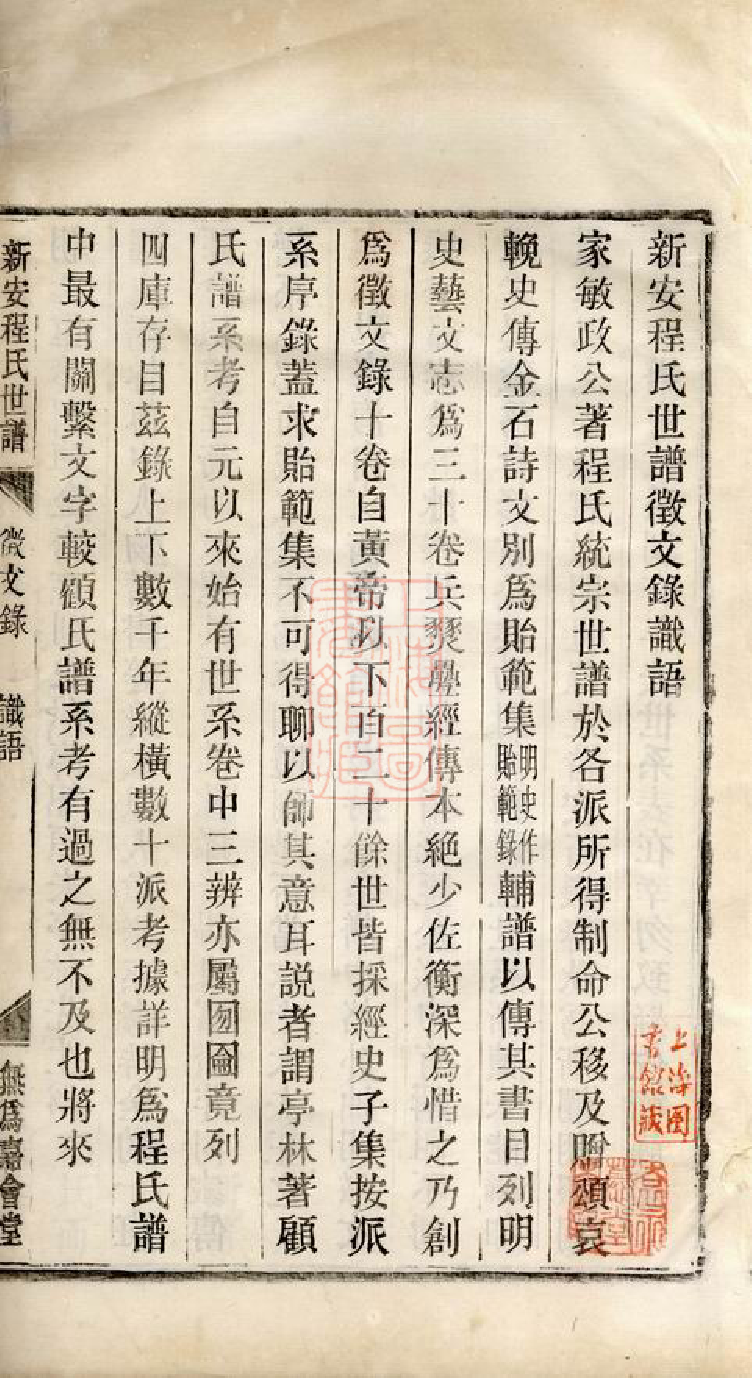 新安程氏世譜徵文錄識語
家敏政公著程氏統宗世譜於各派所得制命公移及贈頌哀
輓史傳金石詩文別爲貽範集明史作貽範錄輔譜以傳其書目列明
史藝文志爲三十卷兵燹疊經傳本絶少佐衡深爲惜之乃創
爲徵文錄十卷自黃帝以下百二十餘世皆採經史子集按派
系序錄蓋求貽範集不可得聊以師其意耳説者謂亭林著顧
氏譜系考自元以來始有世系卷中三辨亦屬囫圇竟列
四庫存目茲錄上下數千年縱橫數十派考據詳明爲程氏譜
中最有關繫文字較顧氏譜系考有過之無不及也將來
新安程氏世譜 徵文錄 識語 無爲嘉會堂
上海圖書館藏